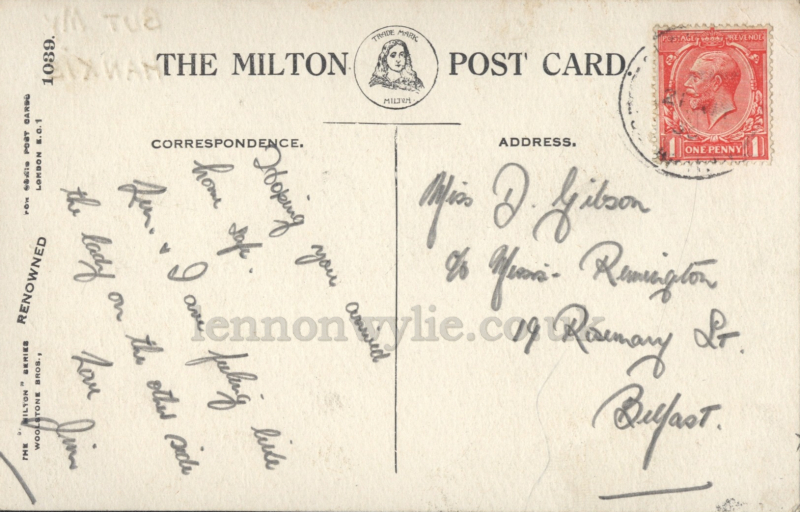 BUT MY
HANKIE
1039.
THE MILTON POST CARD
TRADE MARK
MILTON
POSTAGE REVENUE
1 ONE PENNY 1
CORRESPONDENCE.
ADDRESS.
Hoping you arrived
home safe.
I am feeling like
the lady on the other side
Love Jim
Miss D. Gibson
c/o Messrs. Remington
19 Rosemary St.
Belfast.
THE "MILTON" SERIES
WOOLSTONE BROS.,
RENOWNED
FOR POST CARDS
LONDON E.C.1
lennonwylie.co.uk